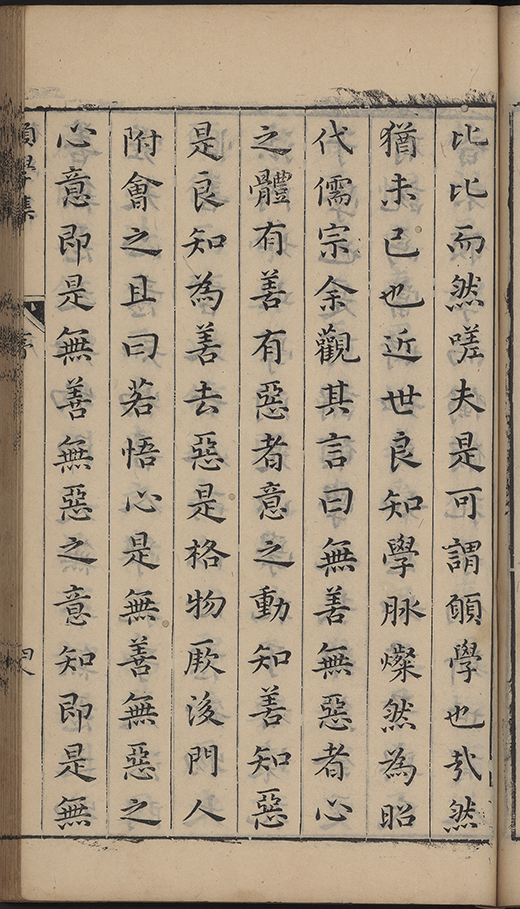 比比而然嗟夫是可謂願學也㢤然
猶未已也近世良知學脉燦然為昭
代儒宗余觀其言曰無善無惡者心
之體有善有惡者意之動知善知惡
是良知為善去惡是格物厥後門人
附會之且曰若悟心是無善無惡之
心意即是無善無惡之意知即是無
願學集
序